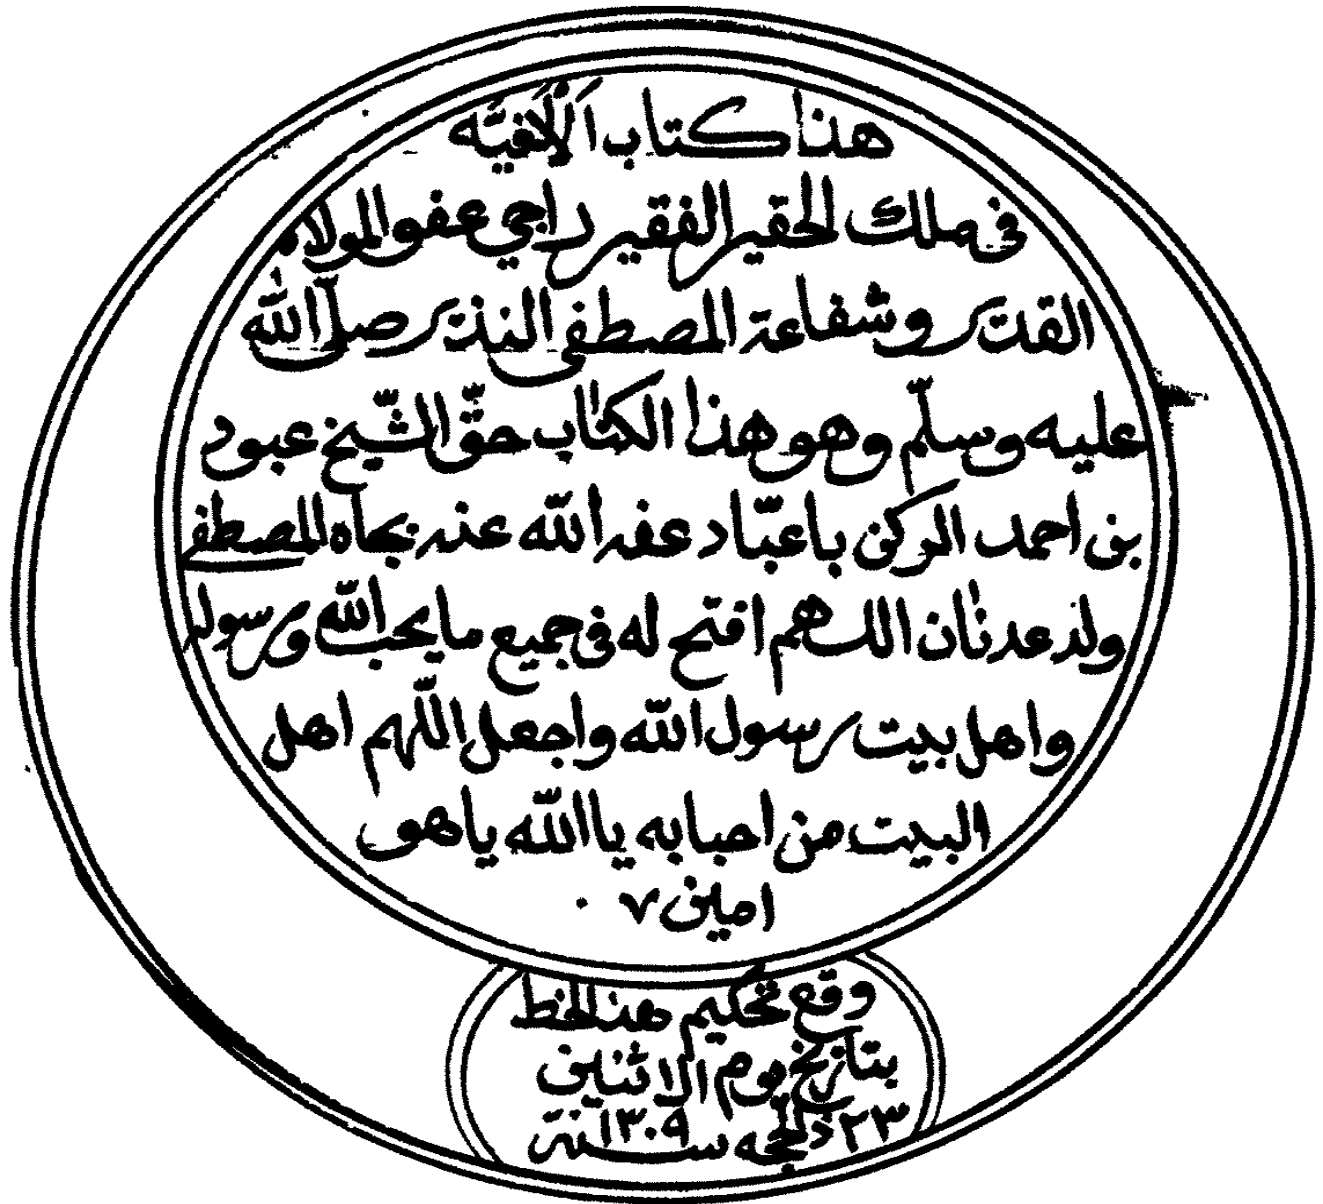 هذا كتاب اَلْاَلفيَّه
في ملك الحقير الفقير راجي عفو المولاه
القدير وشفاعة المصطفى النذير صلّى اللّٰه
عليه وسلّم وهو هذا الكتاب حقّ الشّيخ عبود
بن احمد الركن باعبّاد عفى اللّه عنه بجاه المصطفى
ولد عدنان اللهم افتح له في جميع ما يحب اللّه ورسوله
واهل بيت رسول اللّه واجعل اللّهم اهل
البيت من احبابه يا اللّه يا هو
امين ٧ ٠
وقع تحكيم هذ الخط
بتاريخ يوم الاثنين
٢٣ ذلحجه سنة ١٣٠٩